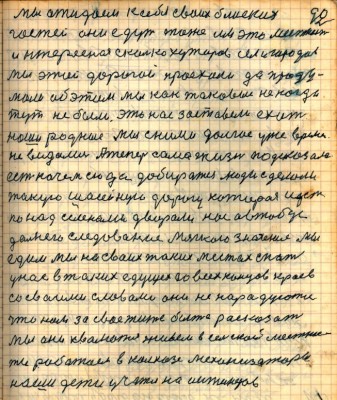 90
мы ожидаем к себя своих близких
гостей они едут тоже им это
и интересная сколко хуторов сел и городов
мы этей дорогой проехали да
мали об этим мы как таковые не когда
тут не были, это нас заставили ехат
наши родные мы сними долгое уже время
не видоми А тепер сама жизн подсказала
ест на чем сюда добиратся люди сделали
такую шасейную дорогу которая идет
по над селенами дворами нас автобус
далнего следование мягкого значение мы
едим мы на своих таких местах спат
у нас в таких едущих со всех концов краев
со своими словами они не нарадуются
что нам за свае жите былте расказат
мы они хвалются живем в селской
ти работаем в колхозе механизаторы
наши дети учатся на